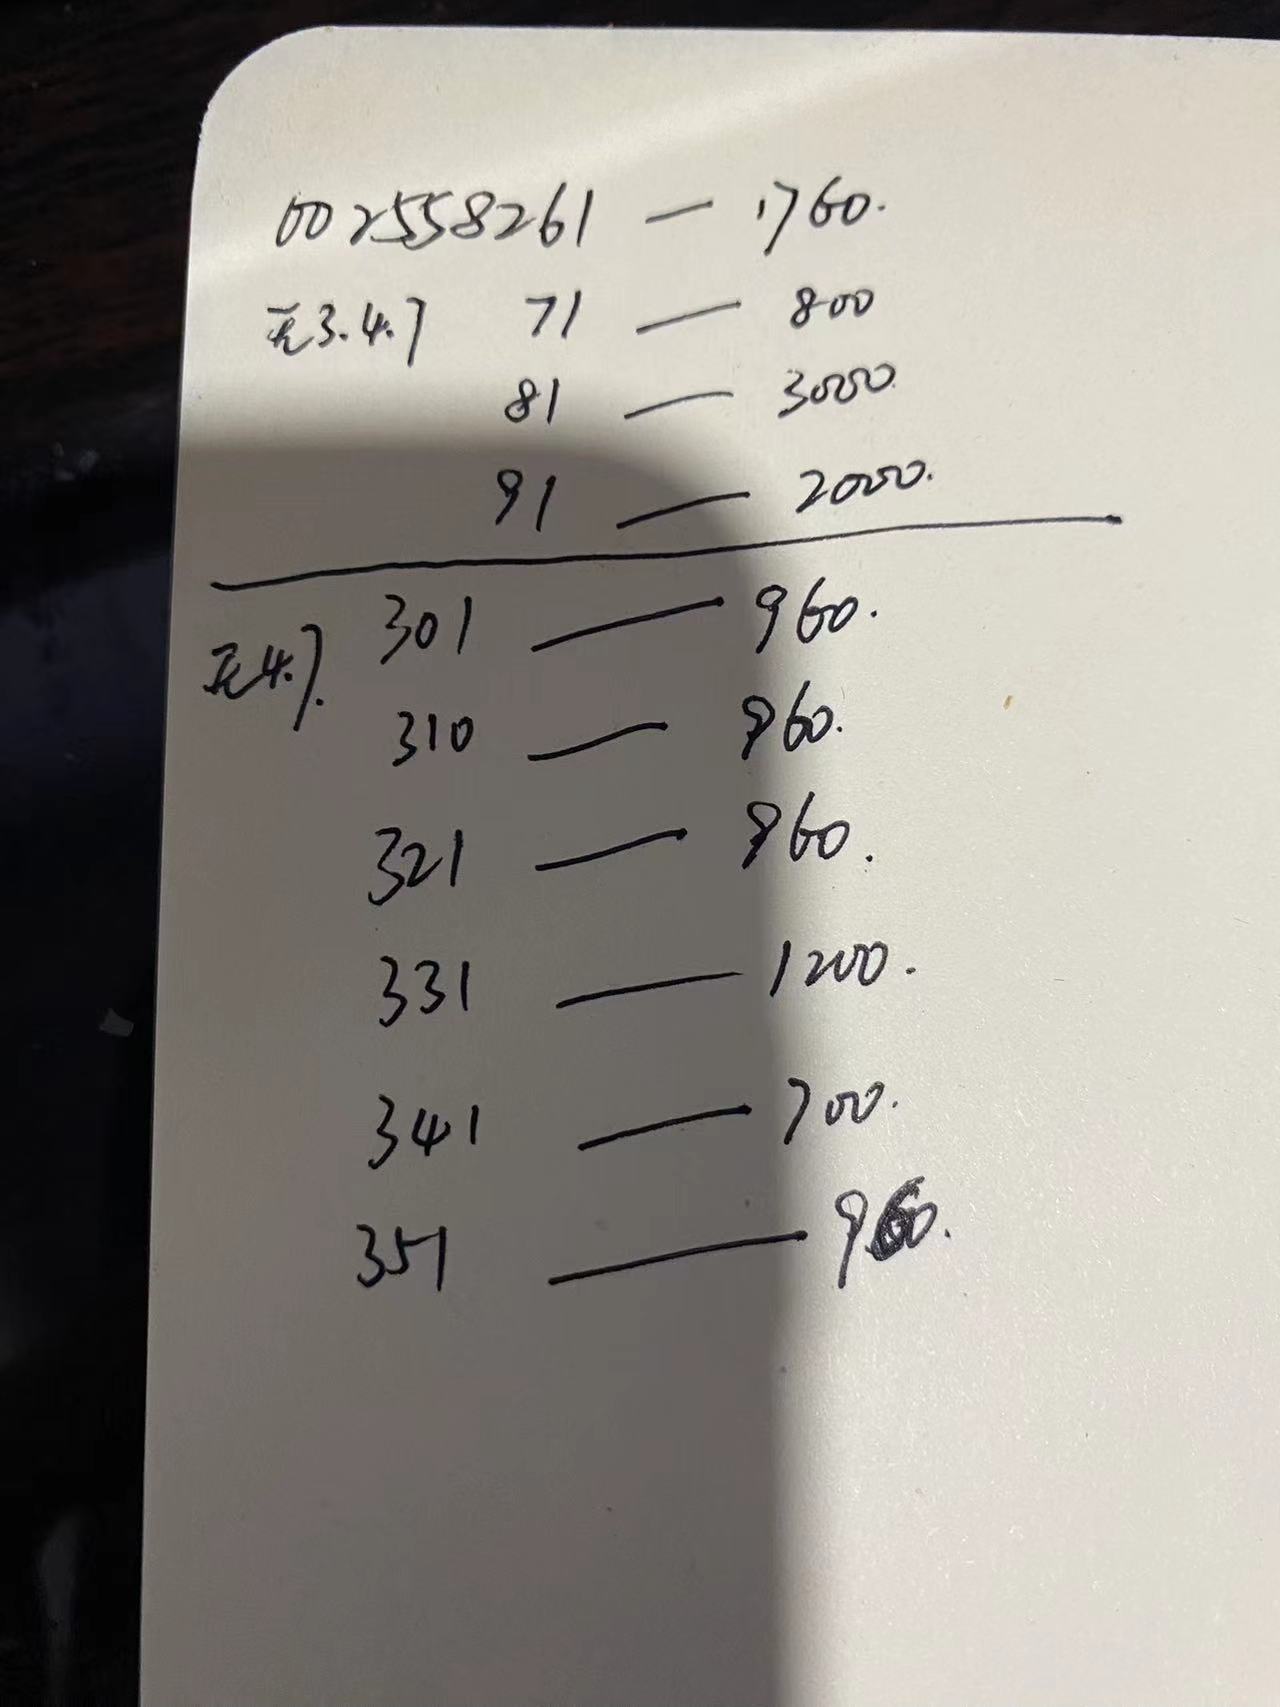 002558261 — 1760.
无3.4.7 71 — 800
81 — 3000.
91 — 2000.
301 — 960.
无4.7. 310 — 960.
321 — 960.
331 — 1200.
341 — 700.
351 — 960.